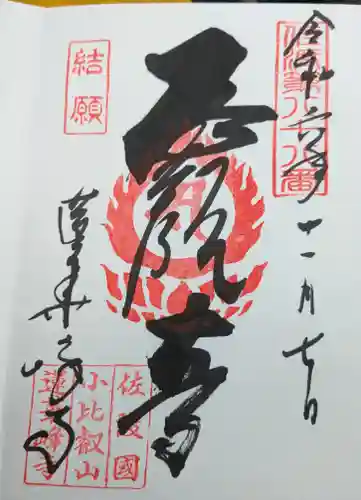 令和六年十一月七日
佐渡第八十八番
正観音
結願
蓮華峰寺
佐渡國
小比叡山
蓮華峰寺